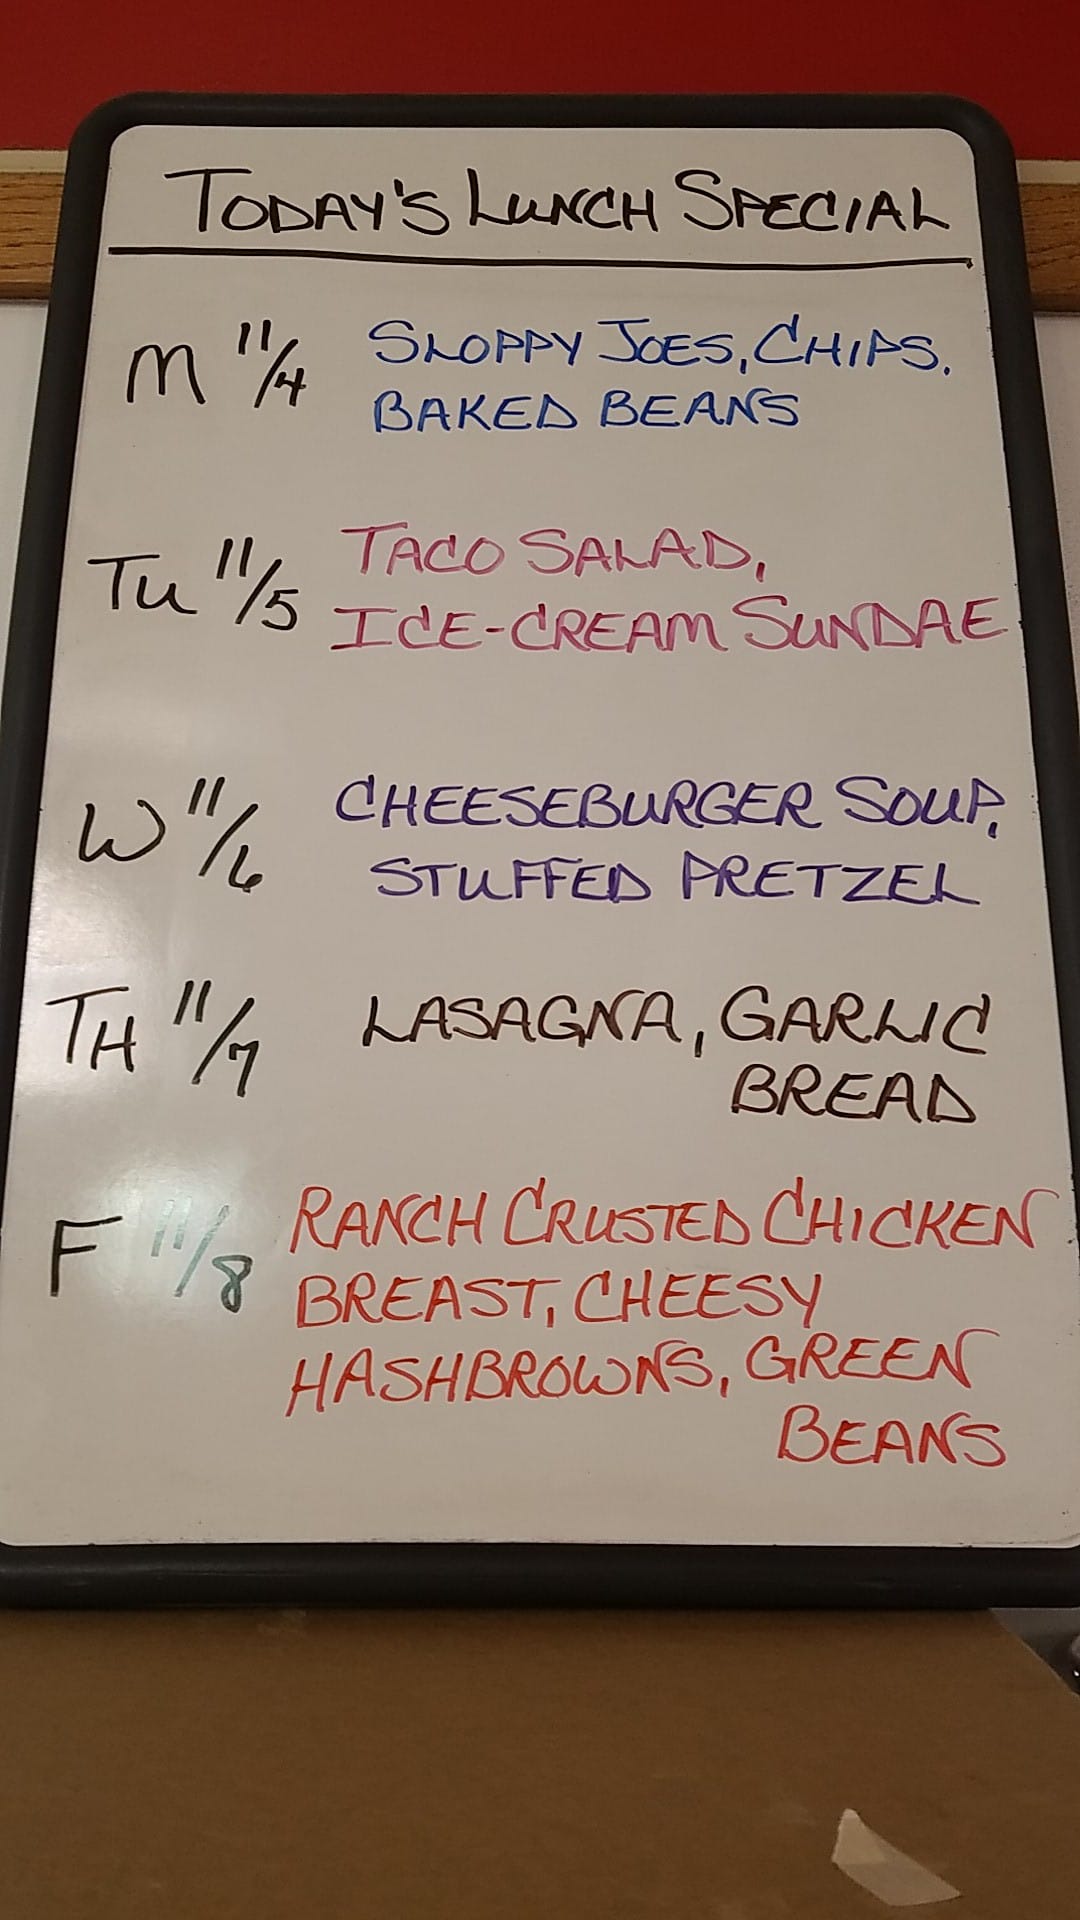 TODAY'S LUNCH SPECIAL
M 11/4 SLOPPY JOES, CHIPS,
BAKED BEANS
TU 11/5 TACO SALAD,
ICE-CREAM SUNDAE
W 11/6 CHEESEBURGER SOUP,
STUFFED PRETZEL
TH 11/7 LASAGNA, GARLIC
BREAD
F 11/8 RANCH CRUSTED CHICKEN
BREAST, CHEESY
HASHBROWNS, GREEN
BEANS